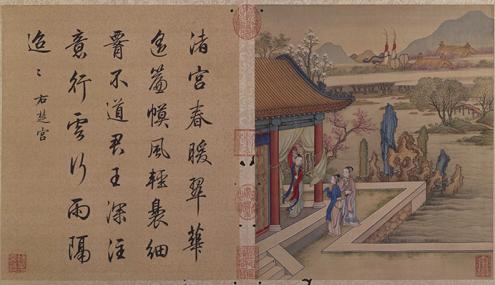 渚宫春暖翠華
簾幙風輕裊細
不道君王深注
意行雲行雨隔
迢〻 右楚宫